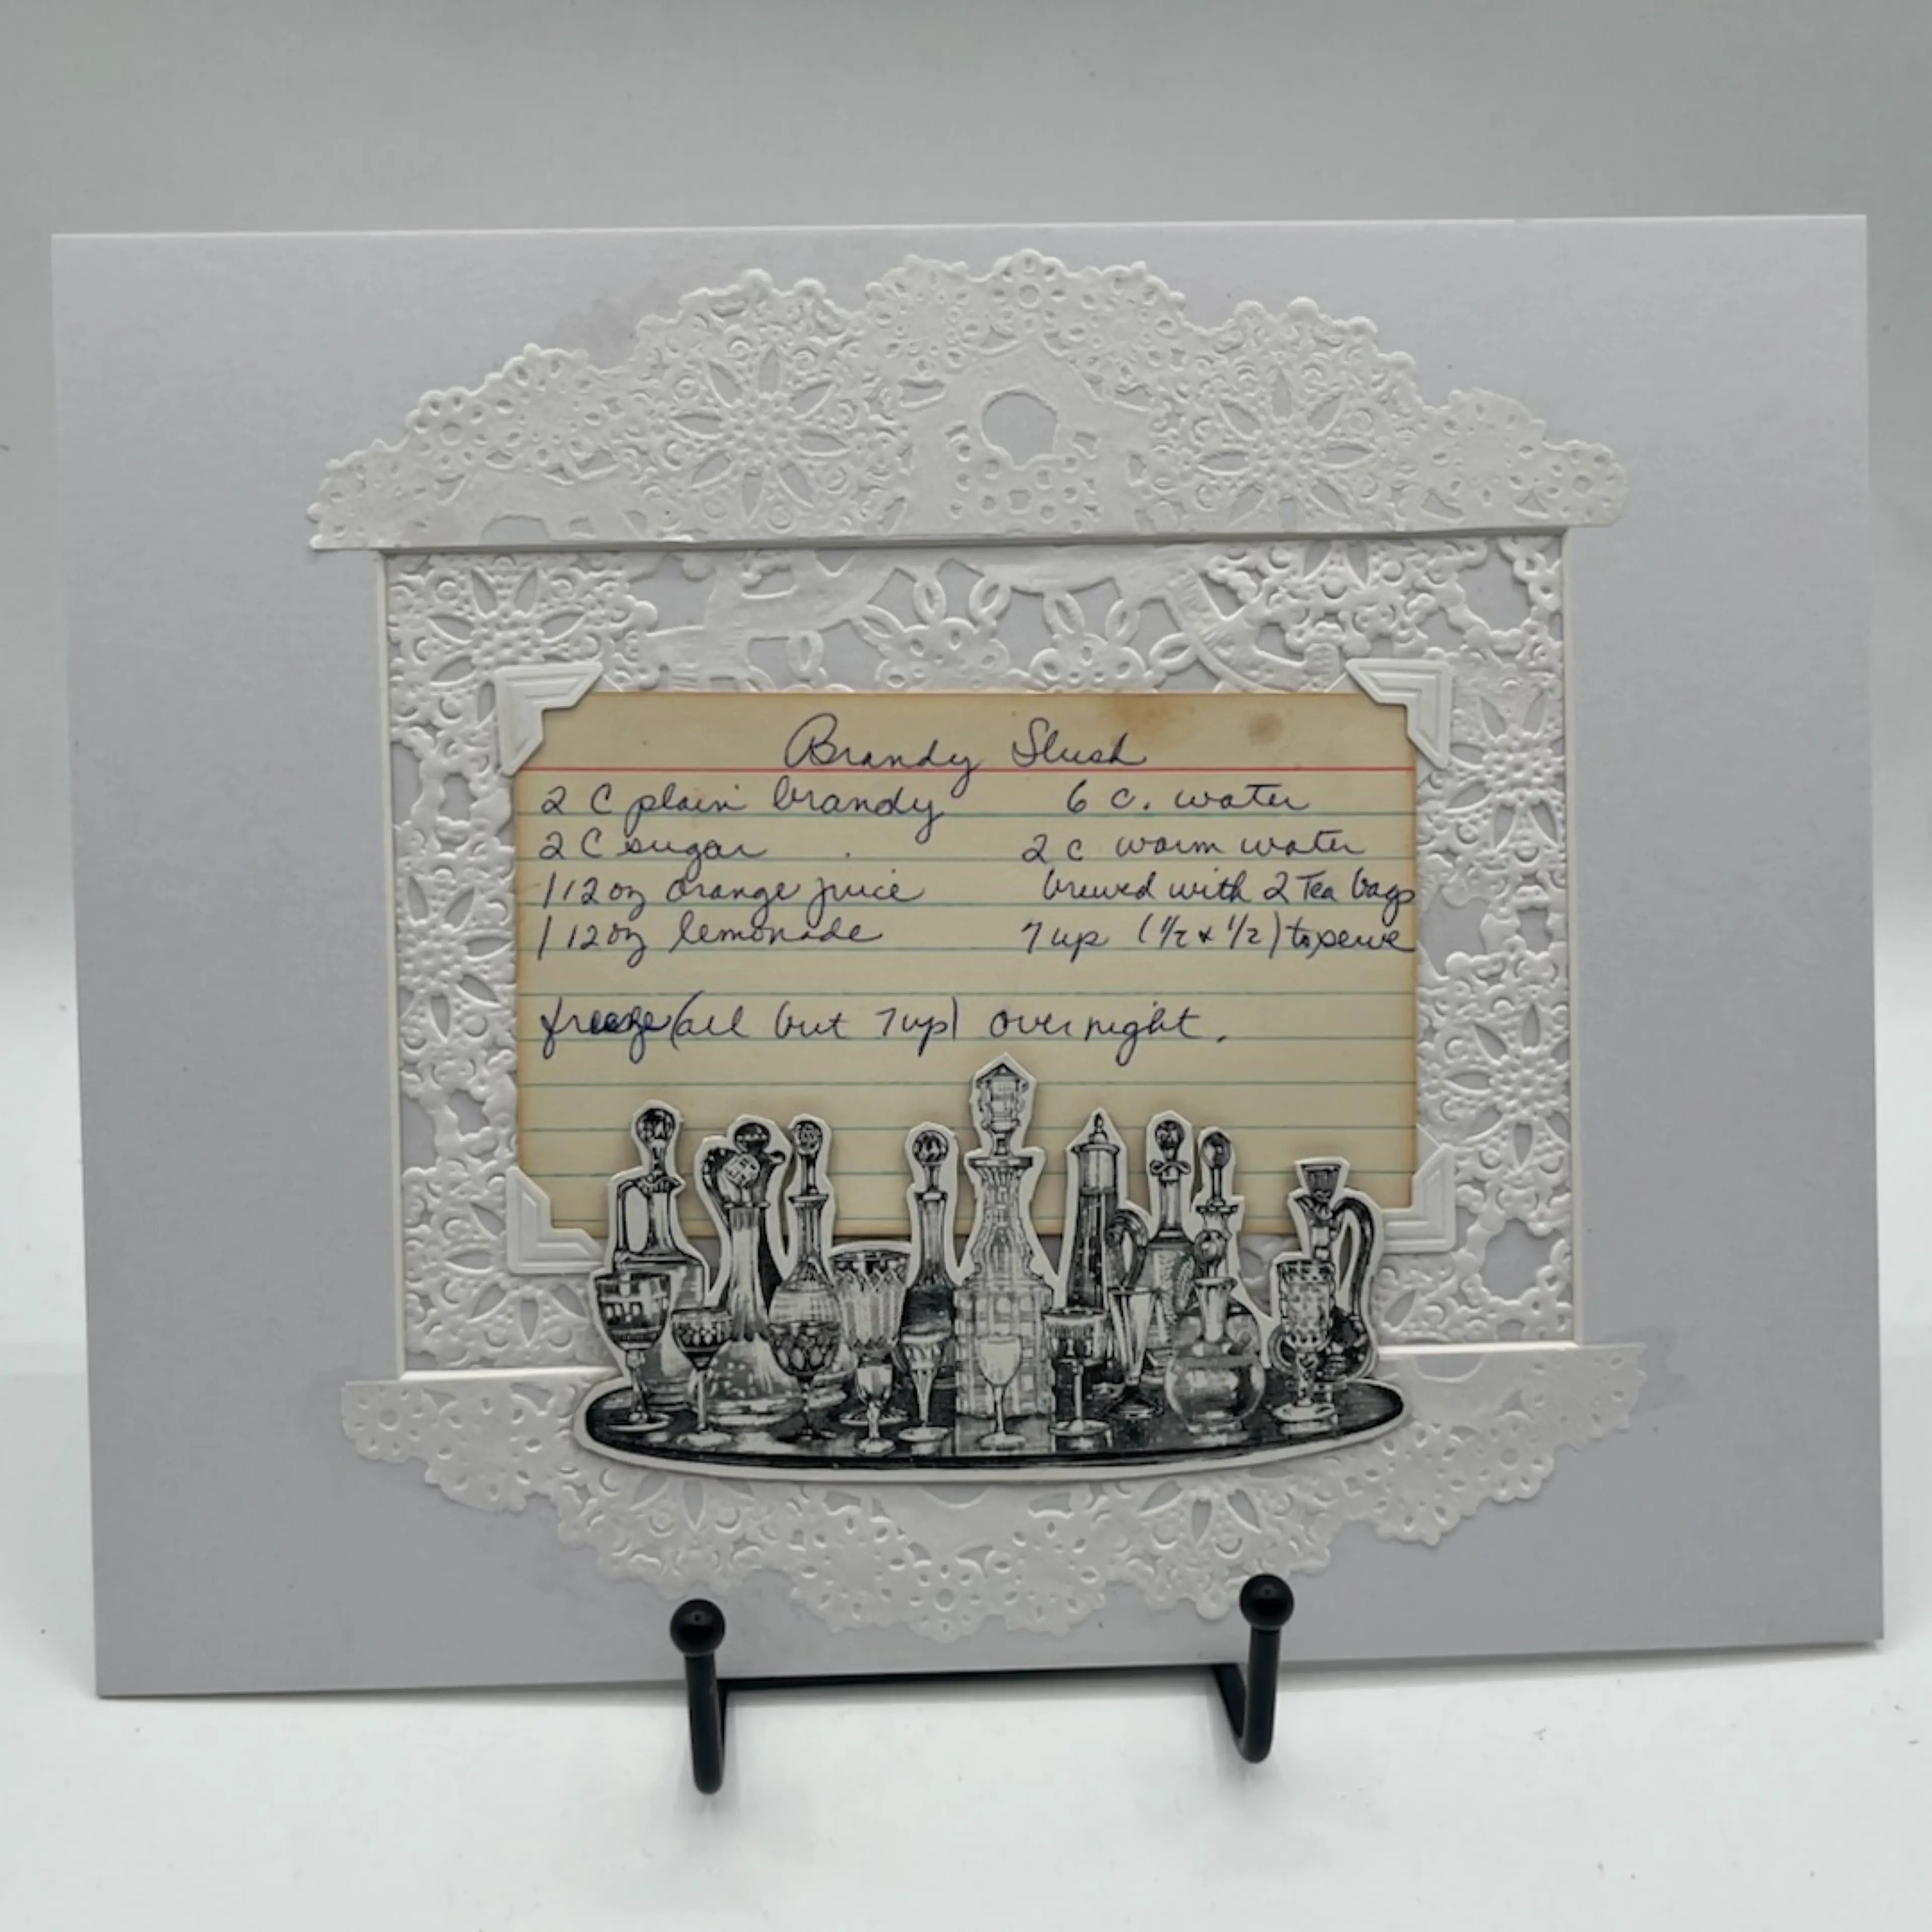 Brandy Slush
2 C plain brandy 6 c. water
2 C sugar 2 c warm water
1 12 oz orange juice brewed with 2 Tea bags
1 12 oz lemonade 7 up (1/2 & 1/2) to serve
freeze (all but 7 up) overnight.